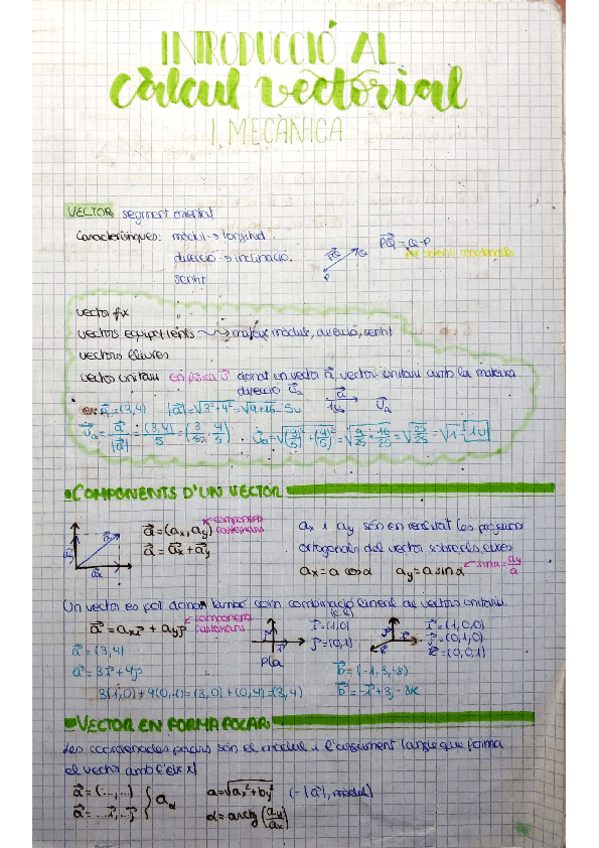 INTRODUCCIÓ AL
càlcul vectorial
I MECÀNICA
VECTOR segment orientat
Característiques: mòdul → longitud
direcció → inclinació
sentit
PQ⃗ = Q-P
P
vector fix
vectors equipol·lents → mateix mòdul, direcció, sentit
vectors lliures
vector unitari donat un vector a⃗, vector unitari amb la mateixa
direcció u⃗ₐ
ex: a⃗ = (3,4) |a⃗| = √3²+4² = √9+16 = 5u
u⃗ₐ = a⃗/|a⃗| = (3,4)/5 = (3/5, 4/5) u⃗ₐ = √(3/5)²+(4/5)² = √9/25+16/25 = √25/25 = √1 = 1u
COMPONENTS D'UN VECTOR
a⃗ = (ax, ay) components cartesians
a⃗ = a⃗x + a⃗y
ax i ay són en realitat les projeccions
ortogonals del vector sobre els eixos
ax = a cos α ay = a sin α sin α = ay/a
Un vector es pot donar també com combinació lineal de vectors unitaris
a⃗ = ax i⃗ + ay j⃗ components cartesians
i⃗ = (1,0)
j⃗ = (0,1)
Pla
i⃗ = (1,0,0)
j⃗ = (0,1,0)
k⃗ = (0,0,1)
a⃗ = (3,4)
a⃗ = 3i⃗ + 4j⃗
3(1,0) + 4(0,1) = (3,0) + (0,4) = (3,4)
b⃗ = (-1,3,-8)
b⃗ = -i⃗ + 3j - 8k
VECTOR EN FORMA POLAR
Les coordenades polars són el mòdul i l'argument (angle que forma
el vector amb l'eix x)
a⃗ = (..., ...)
a⃗ = ... i⃗, ... j⃗
aα
a = √ax² + by² (= |a⃗|, mòdul)
α = arctg (ay/ax)